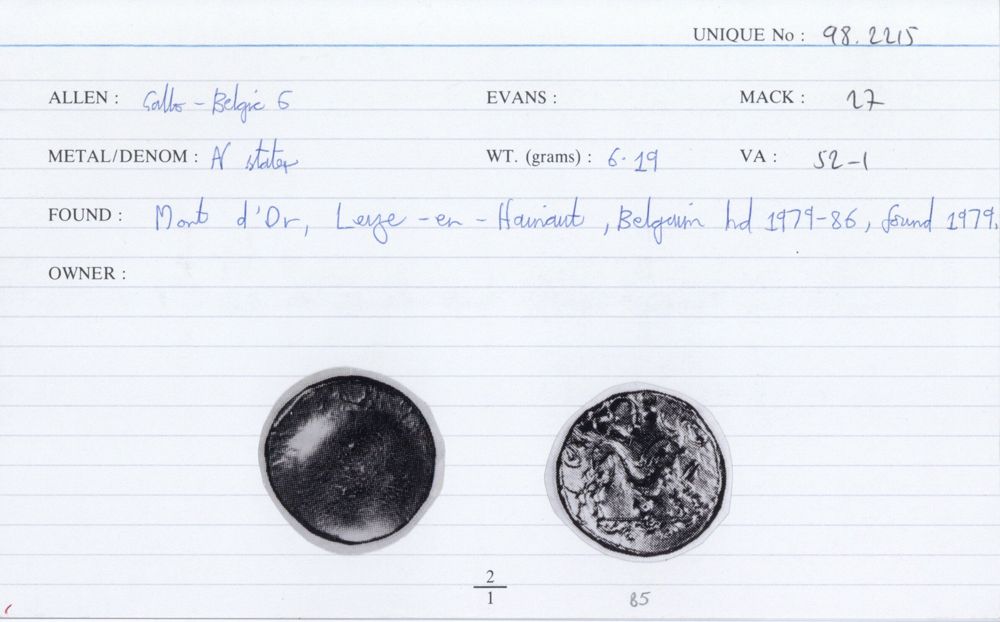 UNIQUE No : 98.2215
ALLEN : Gallo-Belgic E EVANS : MACK : 27
METAL/DENOM : N stater WT. (grams) : 6.19 VA : 52-1
FOUND : Mont d'Or, Leuze-en-Hainaut, Belguim hd 1979-86, found 1979.
OWNER :
2
1
85